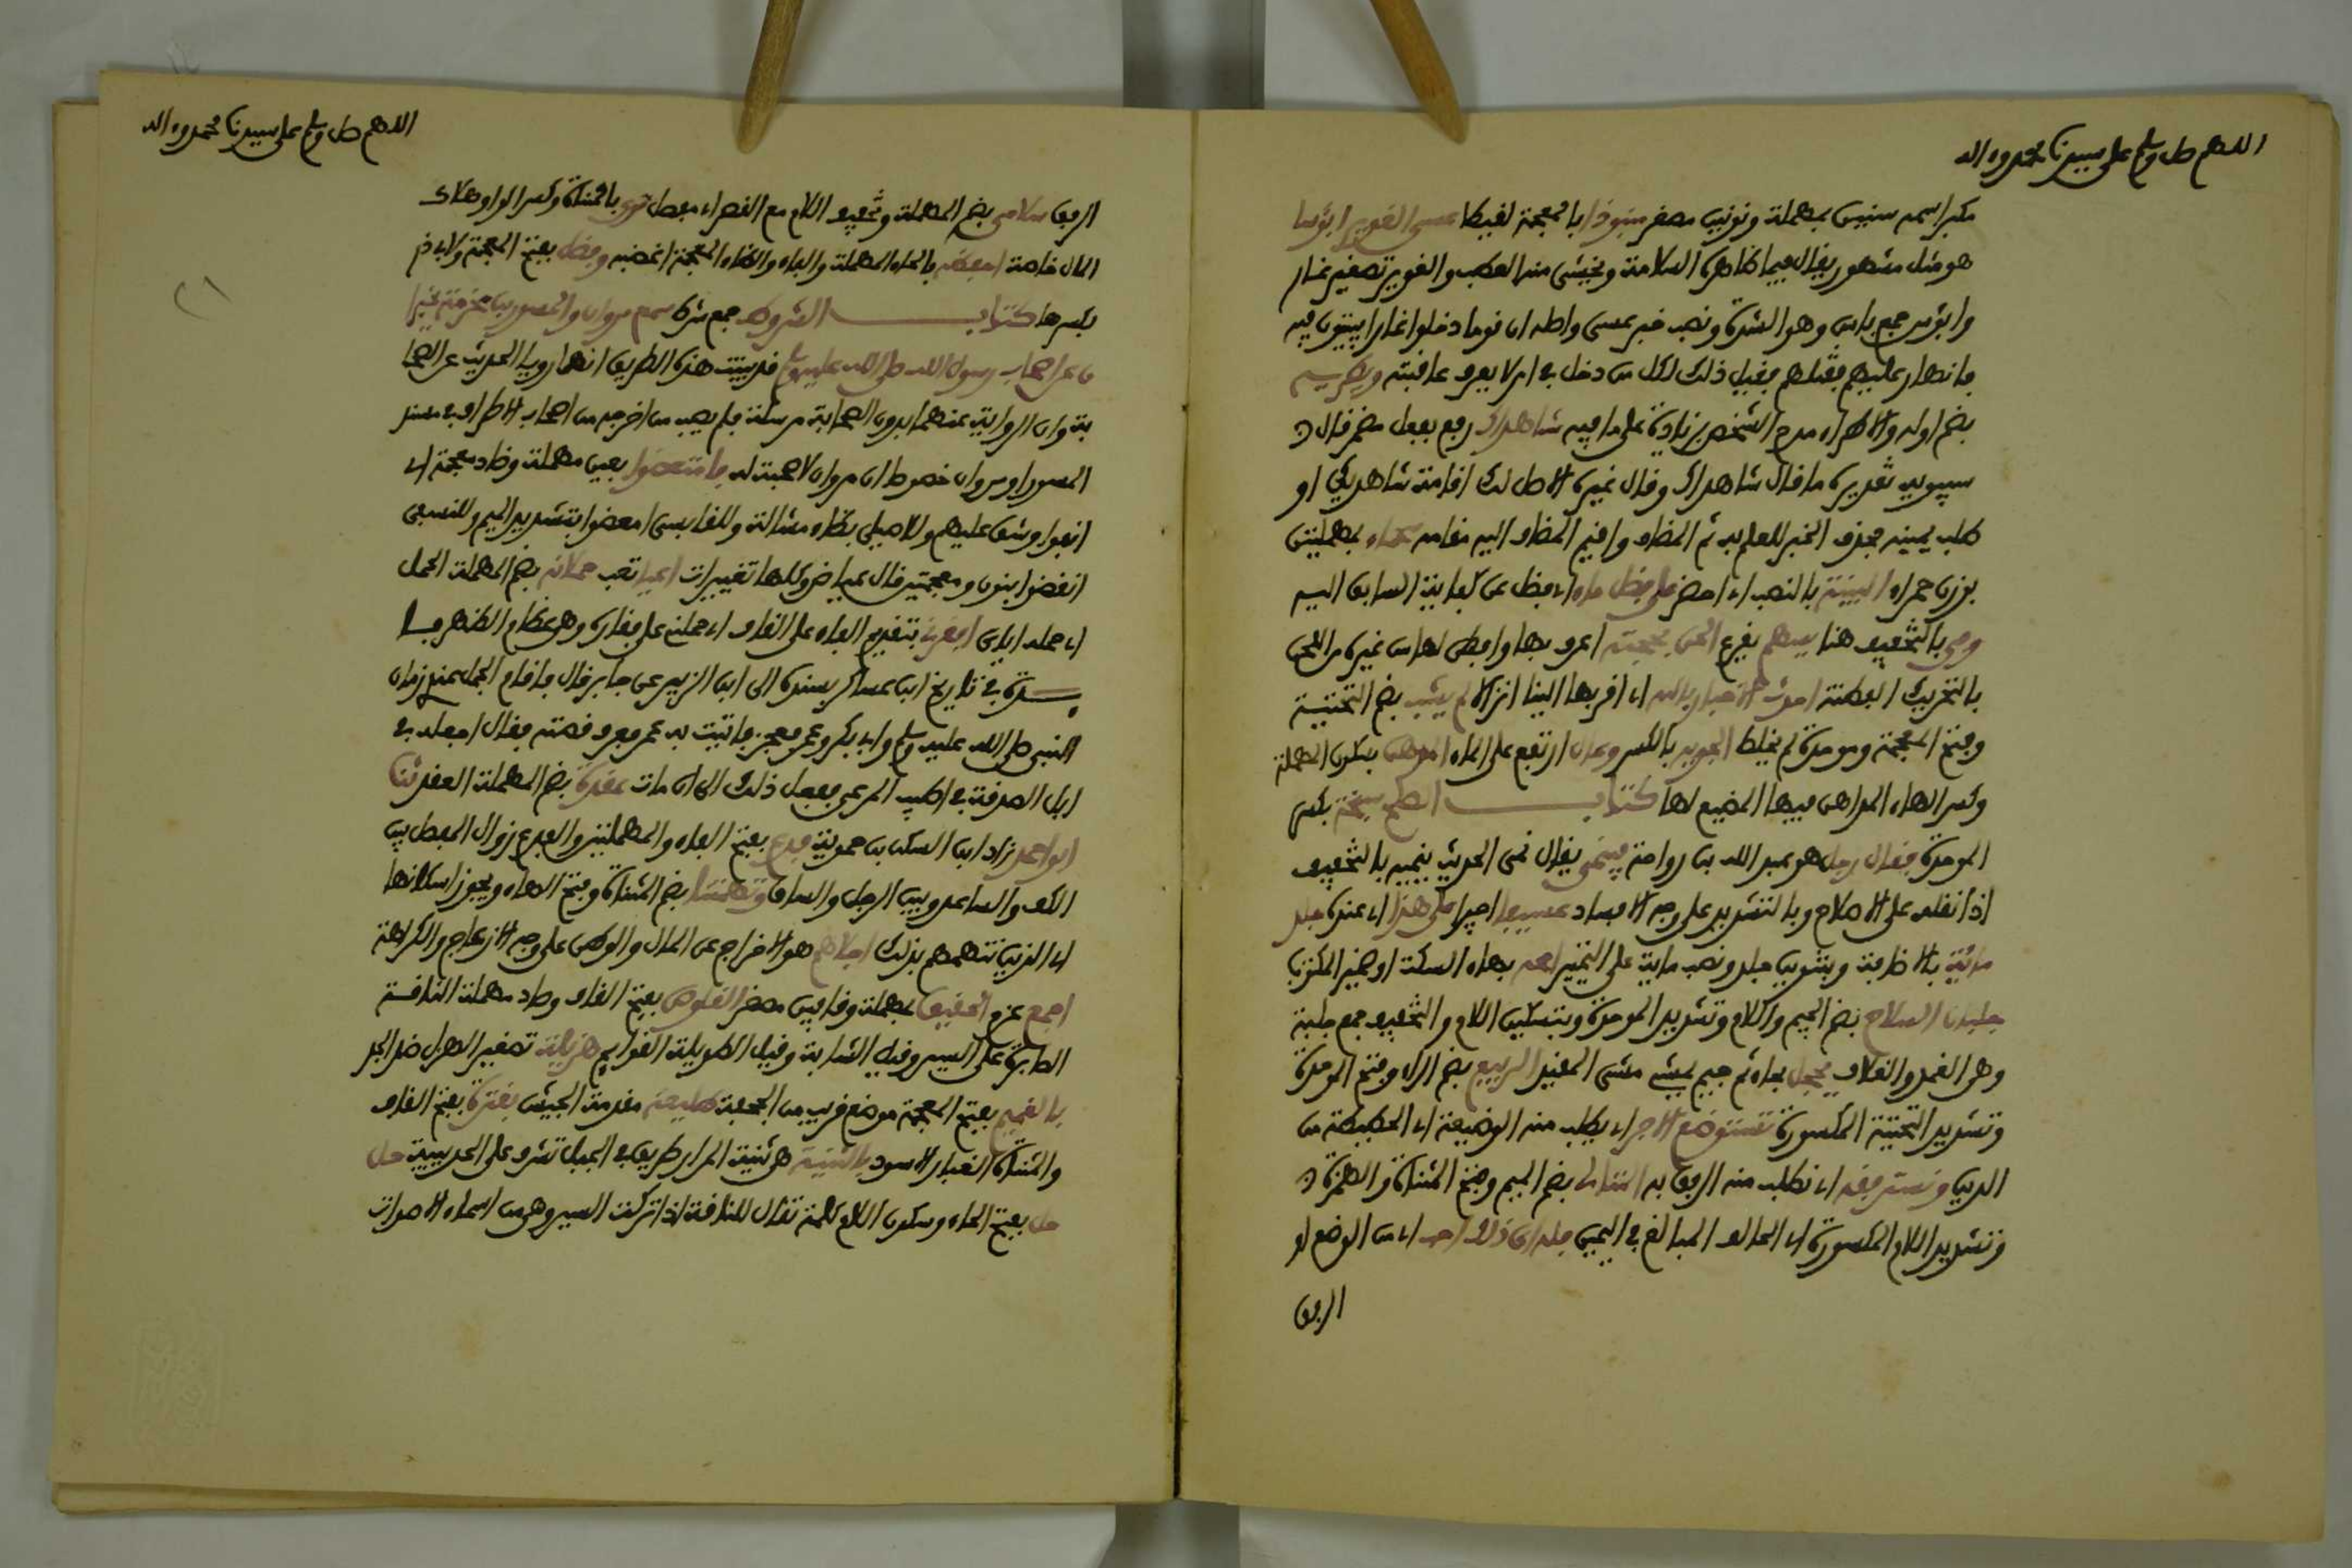 اللهم صل وسلم على سيدنا محمد وءاله
مكبر اسمه سنين بمهملة ونونين مصغر منبوذا بالمعجمة لقيطا عسى الغوير ابؤسا
هو مثل مشهور يقال فيما ظاهره السلامة ويخشى منه العطب والغوير تصغير غار
وابؤس جمع باس وهو الشدة ونصب خبر عسى واصله ان قوما دخلوا غارا يبيتون فيه
فانهار عليهم فقتلهم فقيل ذلك لكل من دخل في امر لا يعرف عاقبته ويطريه
بضم اوله والاطراء مدح الشخص بزيادة على ما فيه شاهداك رفع بفعل مضمر قال
سيبويه تقديره ما قال شاهداك وقال غيره الاصل لك اقامة شاهديك او
طلب يمينه فحذف الخبر للعلم به ثم المضاف واقيم المضاف اليه مقامه سحماء بمهملتين
بوزن حمراء البينة بالنصب اي احضر على فضل ماء اي فضل عن كفاية السابق اليه
وحي بالتخفيف هنا يسهم يقرع الحن بحجته اعرف بها وافطن لها من غيره من اللحن
بالتحريك الفطنة احدث الاخبار بالله اي اقربها الينا انزالا لم يشب بضم التحتية
وفتح المعجمة وموحدة لم يخلط الجريد بالكسر وعال ارتفع على الماء المدهن بسكون المهملة
وكسر الهاء المداهن فيها المضيع لها كتاب الصلح سبخة بكسر
الموحدة فقال رجل هو عبد الله بن رواحة فينمي يقال نمى الحديث ينميه بالتخفيف
اذا نقله على الاصلاح وبالتشديد على وجه الافساد عسيفا اجيرا على هذا اي عنده جلد
مائة بالاضافة وبتنوين جلد ونصب ماية على التمييز لعم بهاء السكت او ضمير المكتوب
جلبان السلاح بضم الجيم واللام وتشديد الموحدة وبتسكين اللام والتخفيف جمع جلبة
وهي الغمد والغلاف يحجل بحاء ثم جيم يمشي مشي المقيد الربيع بضم الراء وفتح الموحدة
وتشديد التحتية المكسورة تستوضع الاخر اي يطلب منه الوضيعة اي الحطيطة من
الدين وتسترفقه اي تطلب منه الرفق به المتالي بضم الميم وفتح المثناة والهمزة
وتشديد اللام المكسورة اي الحالف المبالغ في اليمين فله اي ذلك احب اي من الوضع او
الرفق
اللهم صل وسلم على سيدنا محمد وءاله
الرفق سلامى بضم المهملة وتخفيف اللام مع القصر اي مفصل توى بالمثناة وكسر الواو وهلاك
المال خاصة احفظه بالحاء المهملة والفاء والظاء المعجمة اغضبه وفضل بفتح المعجمة ولابي ذر
بكسرها كتاب الشروط جمع شرط سمع مروان والمسور بن مخرمة يخبرا
ن عن اصحاب رسول الله صلى الله عليه وسلم قد بينت هذه الطريق انهما رويا الحديث عن الصحا
بة وان الرواية عنهما بدون الصحابة مرسلة فلم يصب من اخرجه من اصحاب الاطراف في مسند
المسور او مروان خصوصا ان مروان لا صحبة له وامتعضوا بعين مهملة وضاد معجمة اي
انفوا وشق عليهم وللاصيلي بظاء مشالة وللقابسي امعضوا بتشديد الميم وللنسفي
انغضوا بنون ومعجمتين قال عياض وكلها تغييرات اعيا تعب حملانه بضم المهملة الحمل
اي حمله اياي افقرني بتقديم الفاء على القاف اي حملني على فقاره وهو عظام الظهر فا
ئدة في تاريخ ابن عساكر بسنده الى ابي الزبير عن جابر قال فاقام الجمل عندي زمان
النبي صلى الله عليه وسلم وابي بكر وعمر فعجز فاتيت به عمر فعرف قصته فقال اجعله في
ابل الصدقة في اطيب المرعى ففعل ذلك الى ان مات عقدة بضم المهملة العقد ثنا
ابو احمد زاد ابن السكن بن حموية فدع بفتح الفاء والمهملتين والفدع زوال المفصل بين
الكف والساعد وبين الرجل والساق وتهمتنا بضم المثناة وفتح الهاء ويجوز اسكانها
اي الذين نتهمهم بذلك اجلاهم هو الاخراج عن المال والوطن على وجه الازعاج والكراهة
اجمع عزم الحقيق بمهملة وقافين مصغر القلوص بفتح القاف وصاد مهملة الناقة
الصابرة على السير وقيل الشابة وقيل الطويلة القوايم هزيلة تصغير الهزل ضد الجد
بالغميم بفتح المعجمة موضع قريب من الجحفة طليعة مقدمة الجيش بقترة بفتح القاف
والمثناة الغبار الاسود بالثنية هي ثنية المرار طريق في الجبل تشرف على الحديبية حل
حل بفتح الحاء وسكون اللام كلمة تقال للناقة اذا تركت السير وهي من اسماء الاصوات